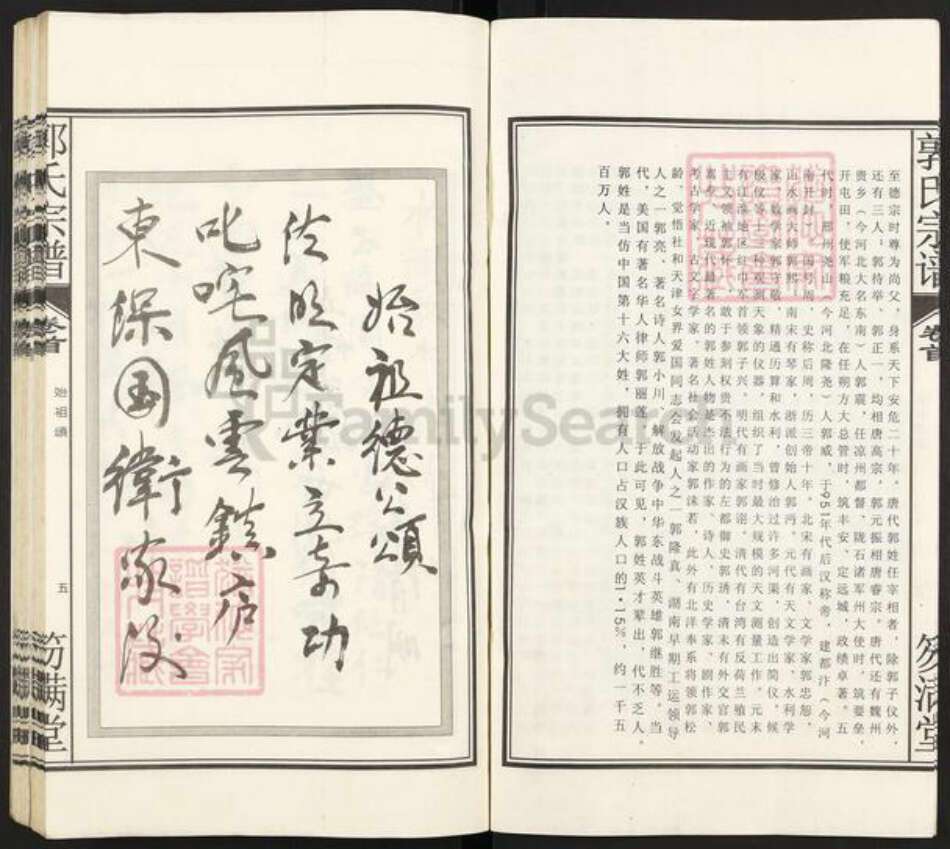 郭氏宗谱
卷首
笏满堂
至德宗时尊为尚父，身系天下安危二十年。唐代郭姓任宰相者，除郭子仪外，
还有三人：郭待举、郭正一，均相唐高宗，郭元振相唐睿宗。唐代还有魏州
贵乡（今河北大名东南）人郭震，任凉州都督、陇右诸军州大使时，筑要垒，
开屯田，使军粮充足，在任朔方大总管时，筑丰安、定远城，政绩卓著。五
代时，邢州尧山（今河北隆尧）人郭威，于951年代后汉称帝，建都汴（今河
南开封），国号周，史称后周，历三帝十年。北宋有画家、文学家郭忠恕，
山水画大师郭熙，南宋有琴家、浙派创始人郭沔。元代有天文学家、水利学
家、数学家郭守敬，精通历算和水利，曾修治过许多河渠，创造出简仪、候
极仪等十三种观测天象的仪器，组织了当时最大规模的天文测量工作。元末
有江淮地区红巾军首领郭子兴。明代有画家郭诩。清代有台湾有反荷兰殖民
主义领袖郭怀一，敢于参刻权贵不法行为的左都御史郭琇，清末有外交官郭
嵩焘。近现代最著名的郭姓人物是杰出的作家、诗人、历史学家、剧作家、
考古学家、古文字学家、著名社会活动家郭沫若，此外有北洋奉系将领郭松
龄，觉悟社和天津女界爱国同志会发起人之一郭隆真，湖南早期工运领导
人之一郭亮，著名诗人郭小川，解放战争中华东战斗英雄郭继胜等。当
代，美国有著名华人律师郭丽莲，于此可见，郭姓英才辈出，代不乏人。
郭姓是当仿中国第十六大姓，拥有人口占汉族人口的1·15%，约一千五
百万人。
始祖德公颂
定業立奇功
叱咤風雲鎮
東保國衛家
郭氏宗譜
卷首
始祖頌
五
笏满堂
FamilySearch